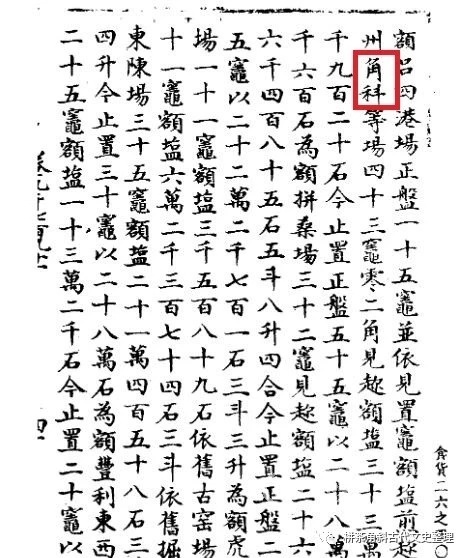 額呂四港場正盤一十五竈並依見置竈額塩前趂
州角科等場四十三竈零二角見趂額塩三十三萬
千九百二十石今止置正盤五十五竈以二十八萬
千六百石為額拼桑場三十二竈見趂額塩二十六
六千四百八十五石五斗八升四合今止置正盤二
五竈以二十二萬二千七百一石三斗三升為額虎
場一十一竈額塩三千五百八十九石依舊古窑場
十一竈額塩六萬二千三百七十四石三斗依舊掘
東陳場三十五竈額塩二十一萬四百五十八石三
四升今止置三十竈以二十八萬石為額豐利東西
二十五竈額塩一十三萬二千石今止置二十竈以
食貨二六之
栟茶角斜古代文史整理